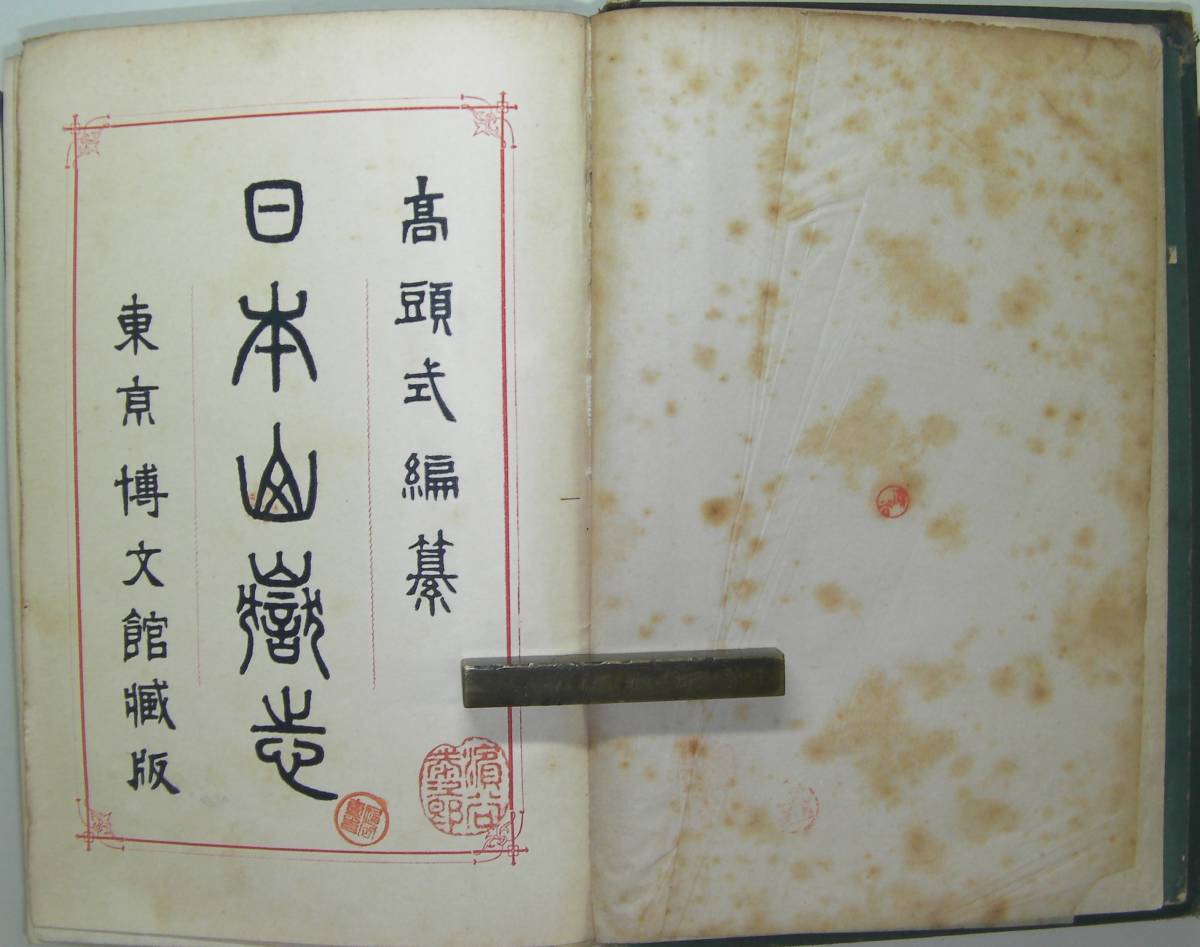 高頭式編纂
日本山嶽志
東京博文館藏版